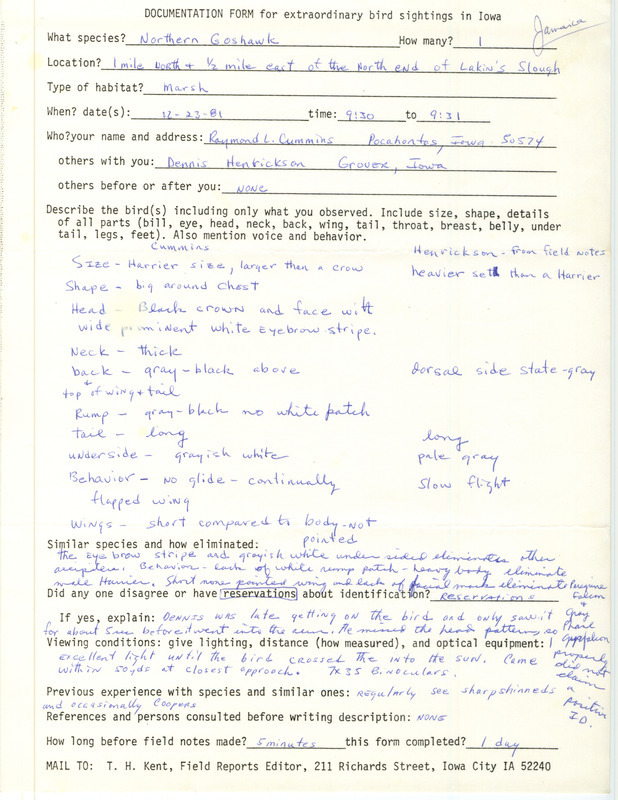 DOCUMENTATION FORM for extraordinary bird sightings in Iowa
Jamaica
What species? Northern Goshawk How many? 1
Location? 1 mile North + ½ mile east of the North end of Lakin's Slough
Type of habitat? Marsh
When? date(s): 12-23-81 time: 9:30 to 9:31
Who?your name and address: Raymond L. Cummins Pocahontas, Iowa 50574
others with you: Dennis Henrickson Grover, Iowa
others before or after you: NONE
Describe the bird(s) including only what you observed. Include size, shape, details
of all parts (bill, eye, head, neck, back, wing, tail, throat, breast, belly, under
tail, legs, feet). Also mention voice and behavior.
Cummins Henrickson - From field notes
Size - Harrier size, larger than a crow heavier set than a Harrier
Shape - big around chest
Head - Black crown and face with
wide prominent white eyebrow stripe.
Neck - thick
back - gray-black above dorsal side state-gray
+ top of wing + tail
Rump - gray-black no white patch
tail - long long
underside - grayish white pale gray
Behavior - no glide - continually slow flight
flapped wing
Wings - short compared to body - not
pointed
Similar species and how eliminated:
the eye brow stripe and grayish white under sided eliminates other
accipiters. Behavior - lack of white rump patch - heavy body eliminate
male Harrier. Short none pointed wing and lack of facial mark eliminate Peregrine
Falcon
+
Gray
phase
Gyrfalcon
Did any one disagree or have reservations about identification? Reservations
If yes, explain: Dennis was late getting on the bird and only saw it
for about 5 sec before it went into the sun. He missed the head patterns, so
properly
did not
claim
a
positive
I.D.
Viewing conditions: give lighting, distance (how measured), and optical equipment:
excellent light until the bird crossed the into the sun. Came
within 50 yds at closest approach. 7x35 Binoculars.
Previous experience with species and similar ones: Regularly see sharpshinneds
and occasionally Coopers
References and persons consulted before writing description: NONE
How long before field notes made? 5 minutes this form completed? 1 day
MAIL TO: T. H. Kent, Field Reports Editor, 211 Richards Street, Iowa City IA 52240